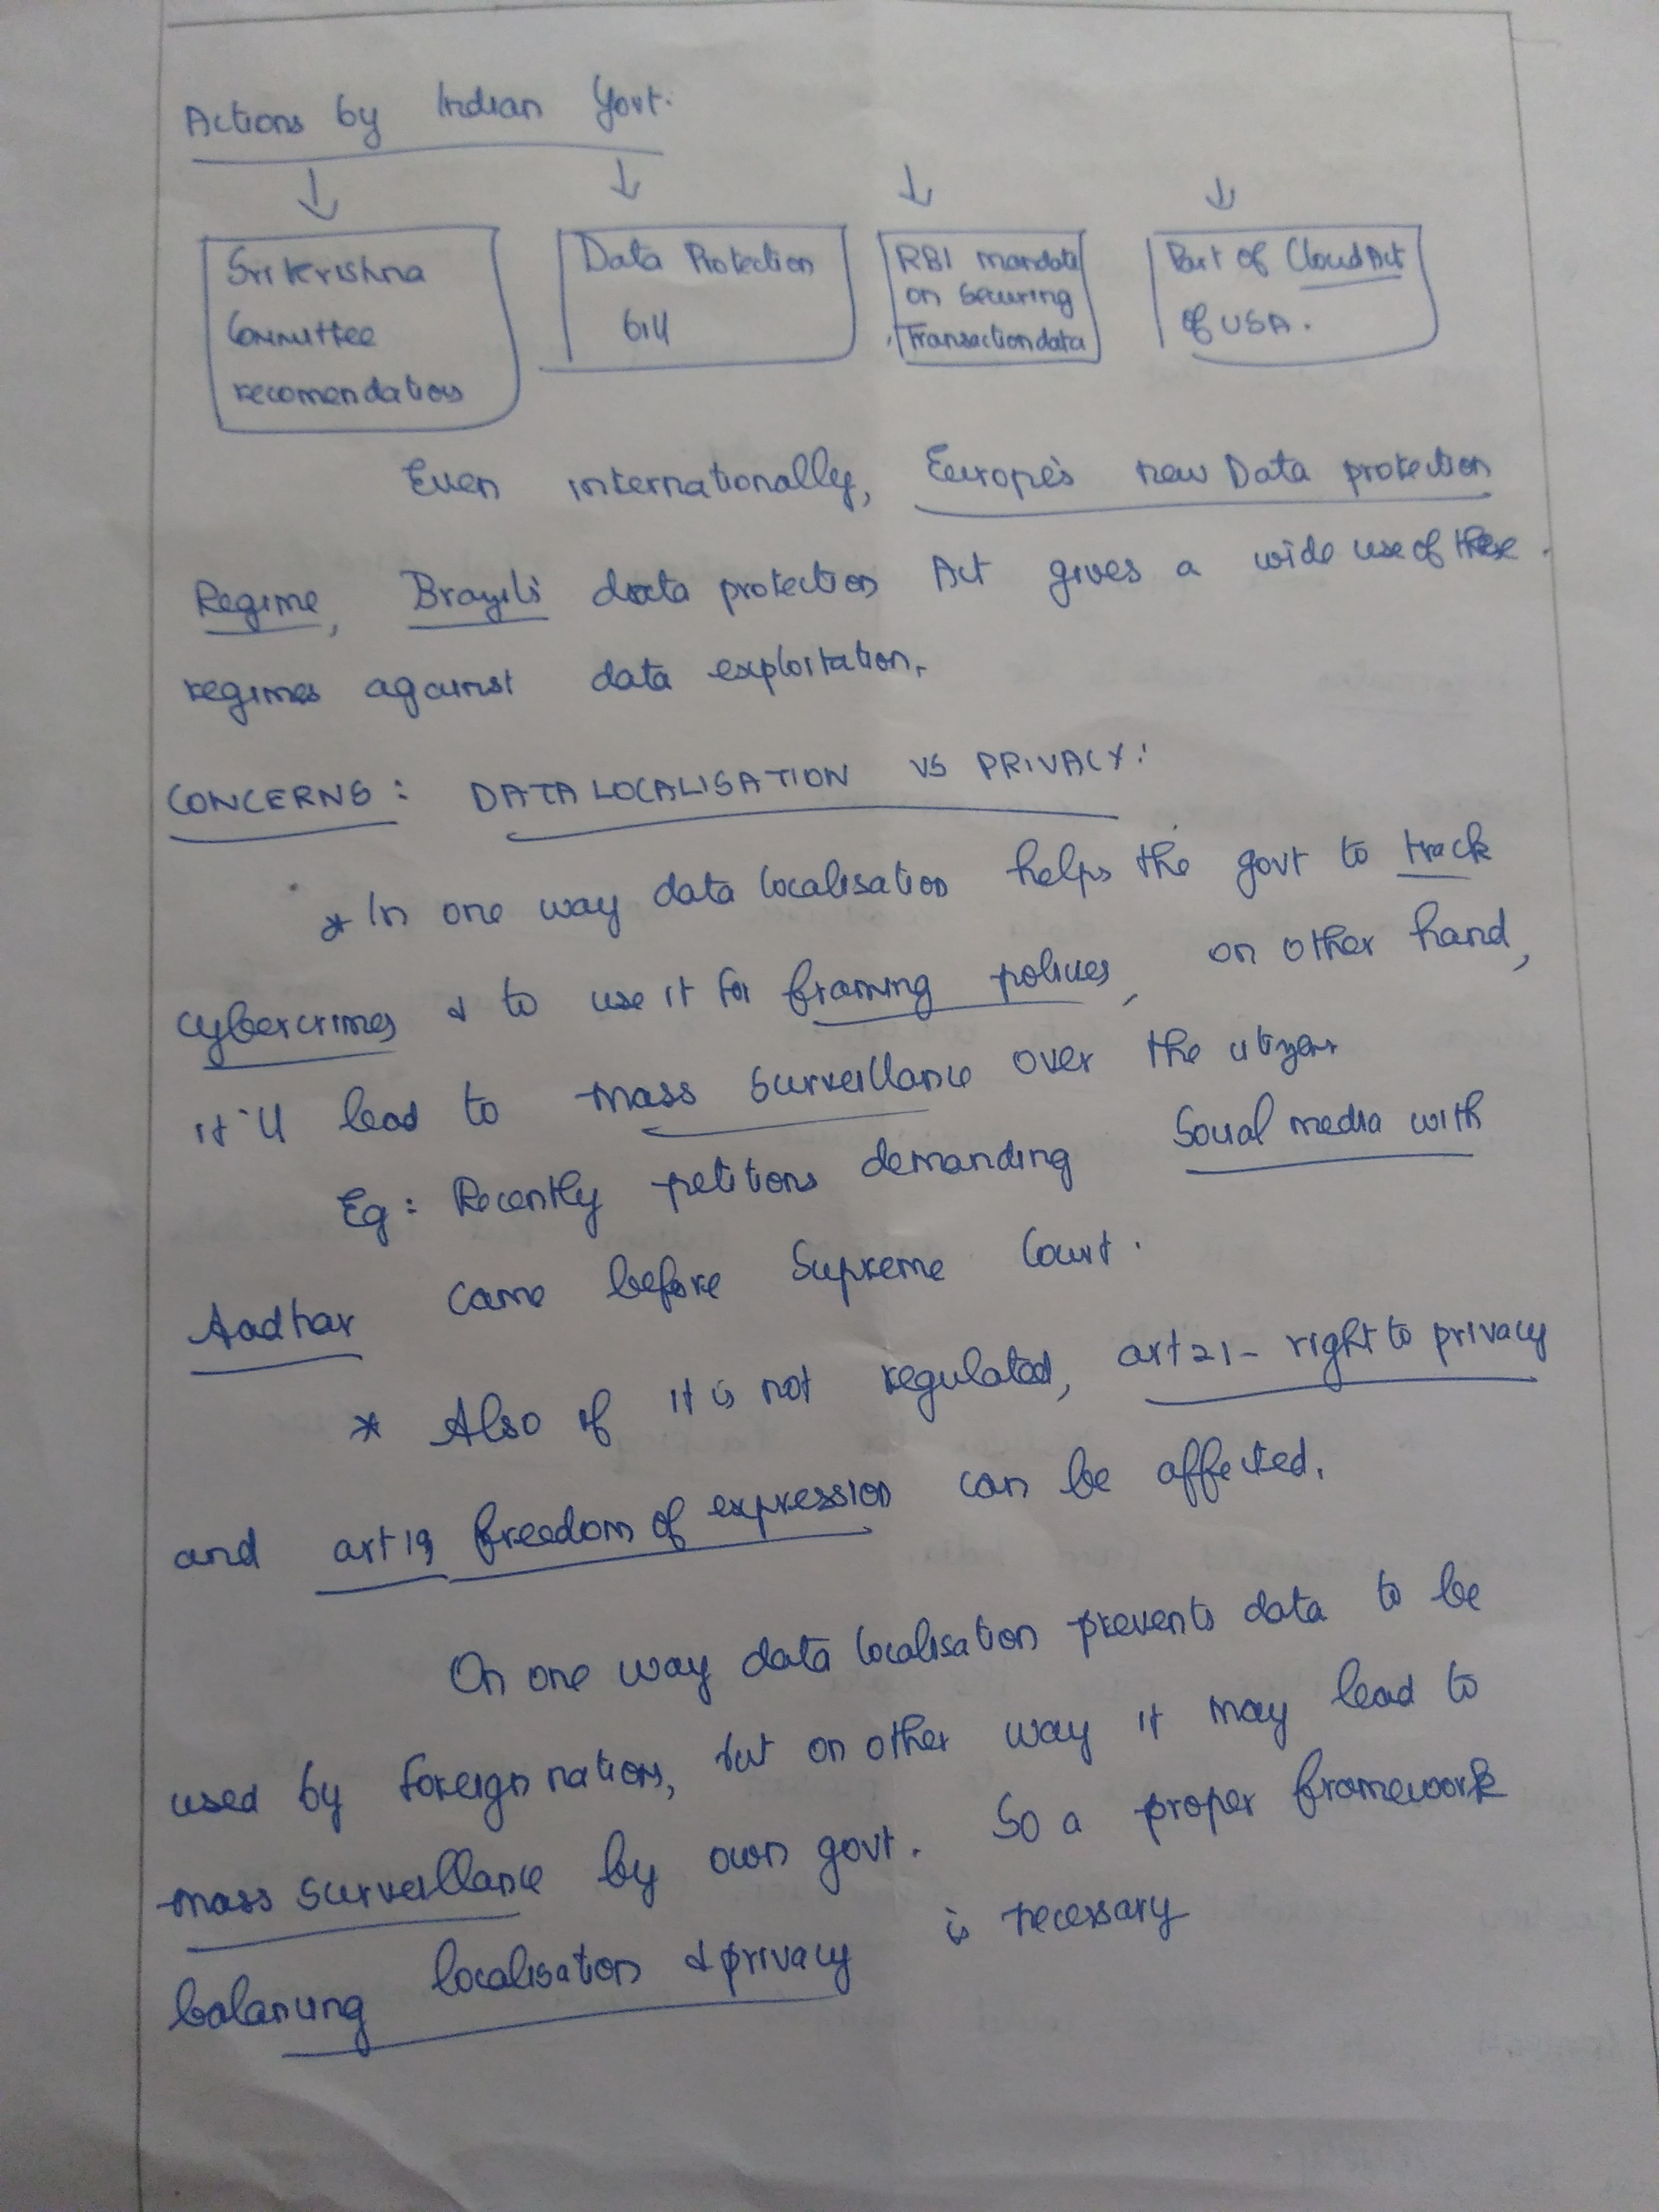 Actions by Indian Govt.
Srikrishna
Committee
recomendations
Data Protection
bill
RBI mandate
on securing
Transaction data
Part of Cloud Act
of USA.
Even internationally, Europe's new Data protection
Regime, Brazil's data protection Act gives a wide use of these
regimes against data exploitation.
CONCERNS: DATA LOCALISATION VS PRIVACY:
* In one way data localisation helps the govt to track
cybercrimes & to use it for framing policies, on other hand,
it'll lead to mass surveillance over the citizens
Eg: Recently petitions demanding Social media with
Aadhar came before Supreme Court.
* Also if it is not regulated, art 21 - right to privacy
and art 19 freedom of expression can be affected.
On one way data localisation prevents data to be
used by foreign nations, but on other way it may lead to
mass surveillance by own govt. So a proper framework
balancing localisation & privacy is necessary